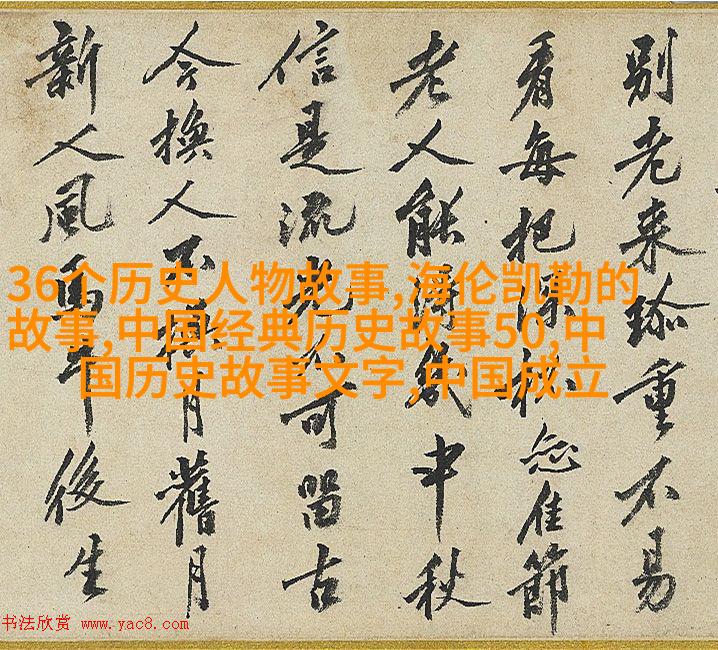 別老来珎重不易
看每把深杯佳節
老人能得幾中秋
信是流光不可留古
今換人不換月舊月
新人風馬牛後生
36个历史人物故事,海伦凯勒的
故事,中国经典历史故事50,中
国历史故事文字,中国成立
书法欣赏 www.yac8.com